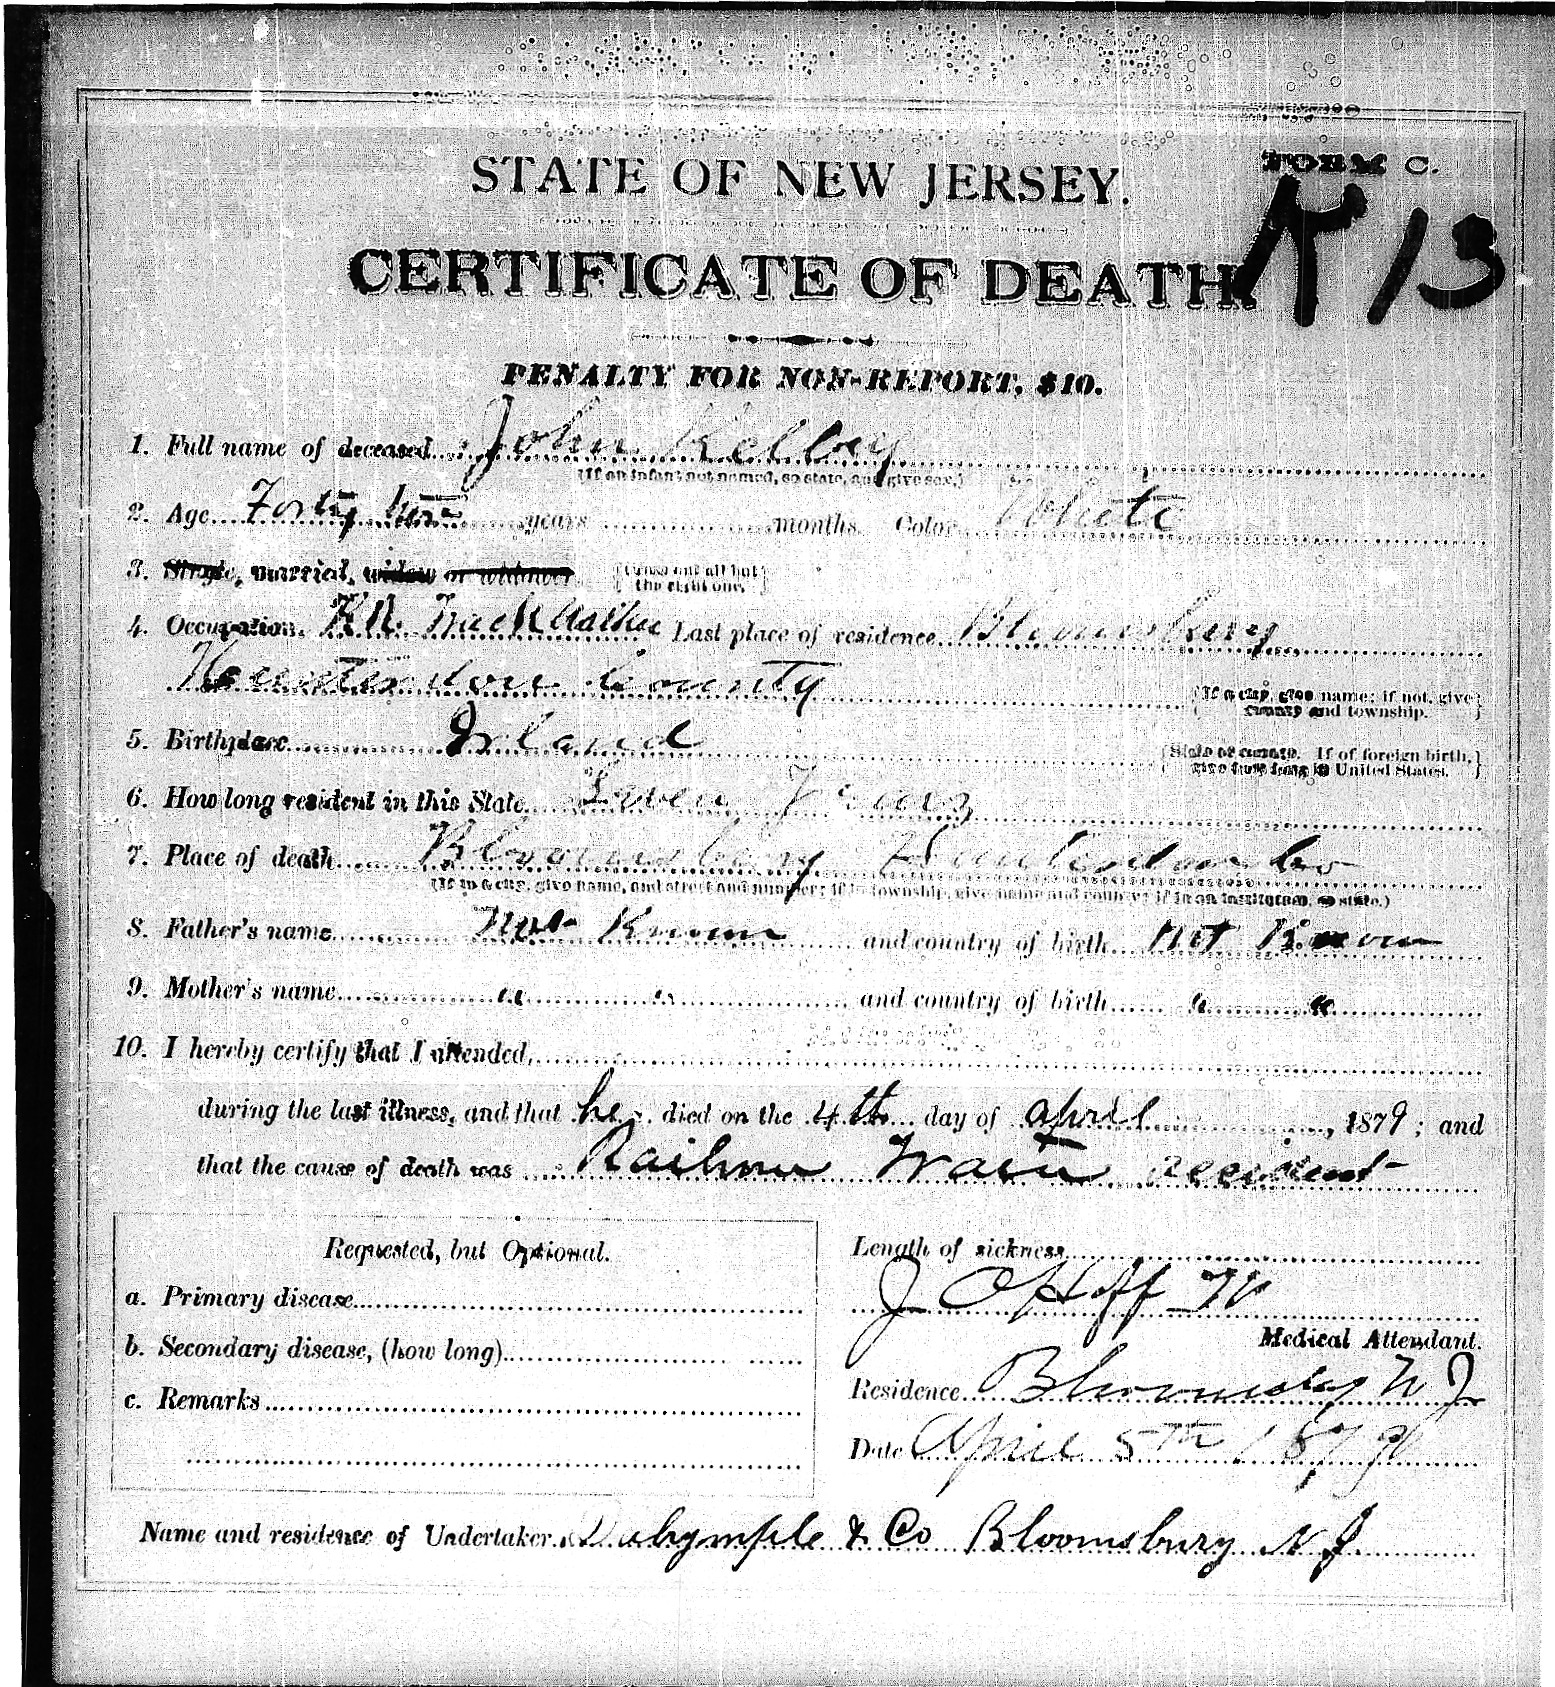 FORM C.
K 13
STATE OF NEW JERSEY.
CERTIFICATE OF DEATH.
PENALTY FOR NON-REPORT, $10.
1. Full name of deceased John Kelley
(If an infant not named, so state, and give sex.)
2. Age Forty years months. Color White
3. Single, married, widow or widower. {Cross out all but the right one.}
4. Occupation, R.R. Track Last place of residence Bloomsbury
Hunterdon County {If a city, give name; if not, give county and township.}
5. Birthplace Irland {State or country. If of foreign birth, give how long in United States.}
6. How long resident in this State Years
7. Place of death Bloomsbury Hunterdon Co
(If in a city, give name, and street and number; if in township, give name and county; if in an institution, so state.)
8. Father's name Not Known and country of birth Not Known
9. Mother's name " " and country of birth " "
10. I hereby certify that I attended
during the last illness, and that he died on the 4th day of april, 1879; and
that the cause of death was Train accident
Requested, but Optional.
a. Primary disease
b. Secondary disease, (how long)
c. Remarks
Length of sickness
J
Medical Attendant.
Residence Bloomsbury N J
Date April 5th 1879
Name and residence of Undertaker Dalrymple & Co Bloomsbury N J.